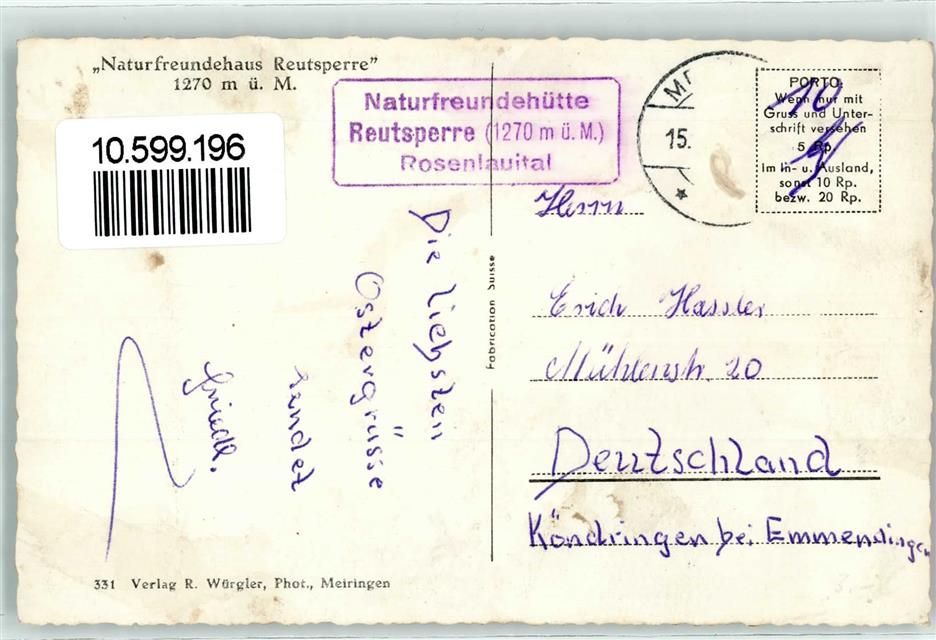 „Naturfreundehaus Reutsperre”
1270 m ü. M.
10.599.196
Naturfreundehütte
Reutsperre (1270 m ü. M.)
Rosenlauital
15.
PORTO
Wenn nur mit
Gruss und Unter-
schrift versehen
5 Rp.
Im In- u. Ausland,
sonst 10 Rp.
bezw. 20 Rp.
Die liebsten
Ostergrüsse
sendet
Friedl.
Fabrication Suisse
Herrn
Erich Hassler
Mühlenstr. 20
Deutschland
Köndringen bei Emmendingen
331 Verlag R. Würgler, Phot., Meiringen